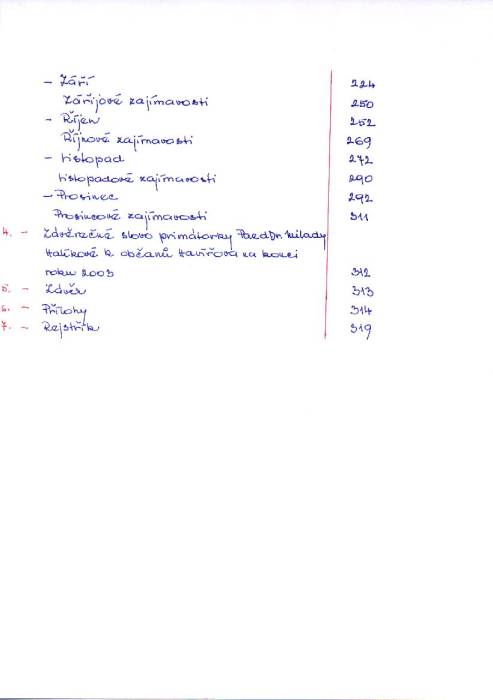 - Září 224
Zářijové zajímavosti 250
- Říjen 252
Říjnové zajímavosti 269
- Listopad 272
Listopadové zajímavosti 290
- Prosinec 292
Prosincové zajímavosti 311
4. - Závěrečné slovo primátorky PaedDr. Milady
Halíkové k občanů Havířova na konci
roku 2003 312
5. - Závěr 313
6. - Přílohy 314
7. - Rejstřík 319